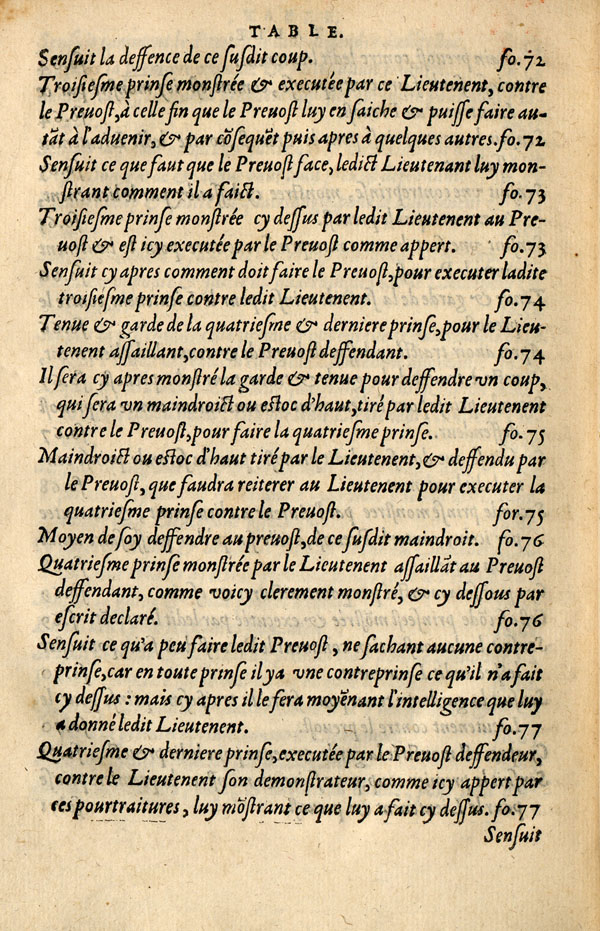 TABLE.
Sensuit la deffence de ce susdit coup. fo.72
Troisiesme prinse monstrée & executée par ce Lieutenent, contre
le Preuost, à celle fin que le Preuost luy en saiche & puisse faire au-
tãt à l'aduenir, & par cõsequẽt puis apres à quelques autres. fo.72
Sensuit ce que faut que le Preuost face, ledict Lieutenant luy mon-
strant comment il a faict. fo.73
Troisiesme prinse monstrée cy dessus par ledit Lieutenent au Pre-
uost & est icy executée par le Preuost comme appert. fo.73
Sensuit cy apres comment doit faire le Preuost, pour executer ladite
troisiesme prinse contre ledit Lieutenent. fo.74
Tenue & garde de la quatriesme & derniere prinse, pour le Lieu-
tenent assaillant, contre le Preuost deffendant. fo.74
Il sera cy apres monstré la garde & tenue pour deffendre vn coup,
qui sera vn maindroict ou estoc d'haut, tiré par ledit Lieutenent
contre le Preuost, pour faire la quatriesme prinse. fo.75
Maindroict ou estoc d'haut tiré par le Lieutenent, & deffendu par
le Preuost, que faudra reiterer au Lieutenent pour executer la
quatriesme prinse contre le Preuost. for.75
Moyen de soy deffendre au preuost, de ce susdit maindroit. fo.76
Quatriesme prinse monstrée par le Lieutenent assaillãt au Preuost
deffendant, comme voicy clerement monstré, & cy dessous par
escrit declaré. fo.76
Sensuit ce qu'a peu faire ledit Preuost, ne sachant aucune contre-
prinse, car en toute prinse il y a vne contreprinse ce qu'il n'a fait
cy dessus : mais cy apres il le fera moyẽnant l'intelligence que luy
a donné ledit Lieutenent. fo.77
Quatriesme & derniere prinse, executée par le Preuost deffendeur,
contre le Lieutenent son demonstrateur, comme icy appert par
ces pourtraitures, luy mõstrant ce que luy a fait cy dessus. fo.77
Sensuit